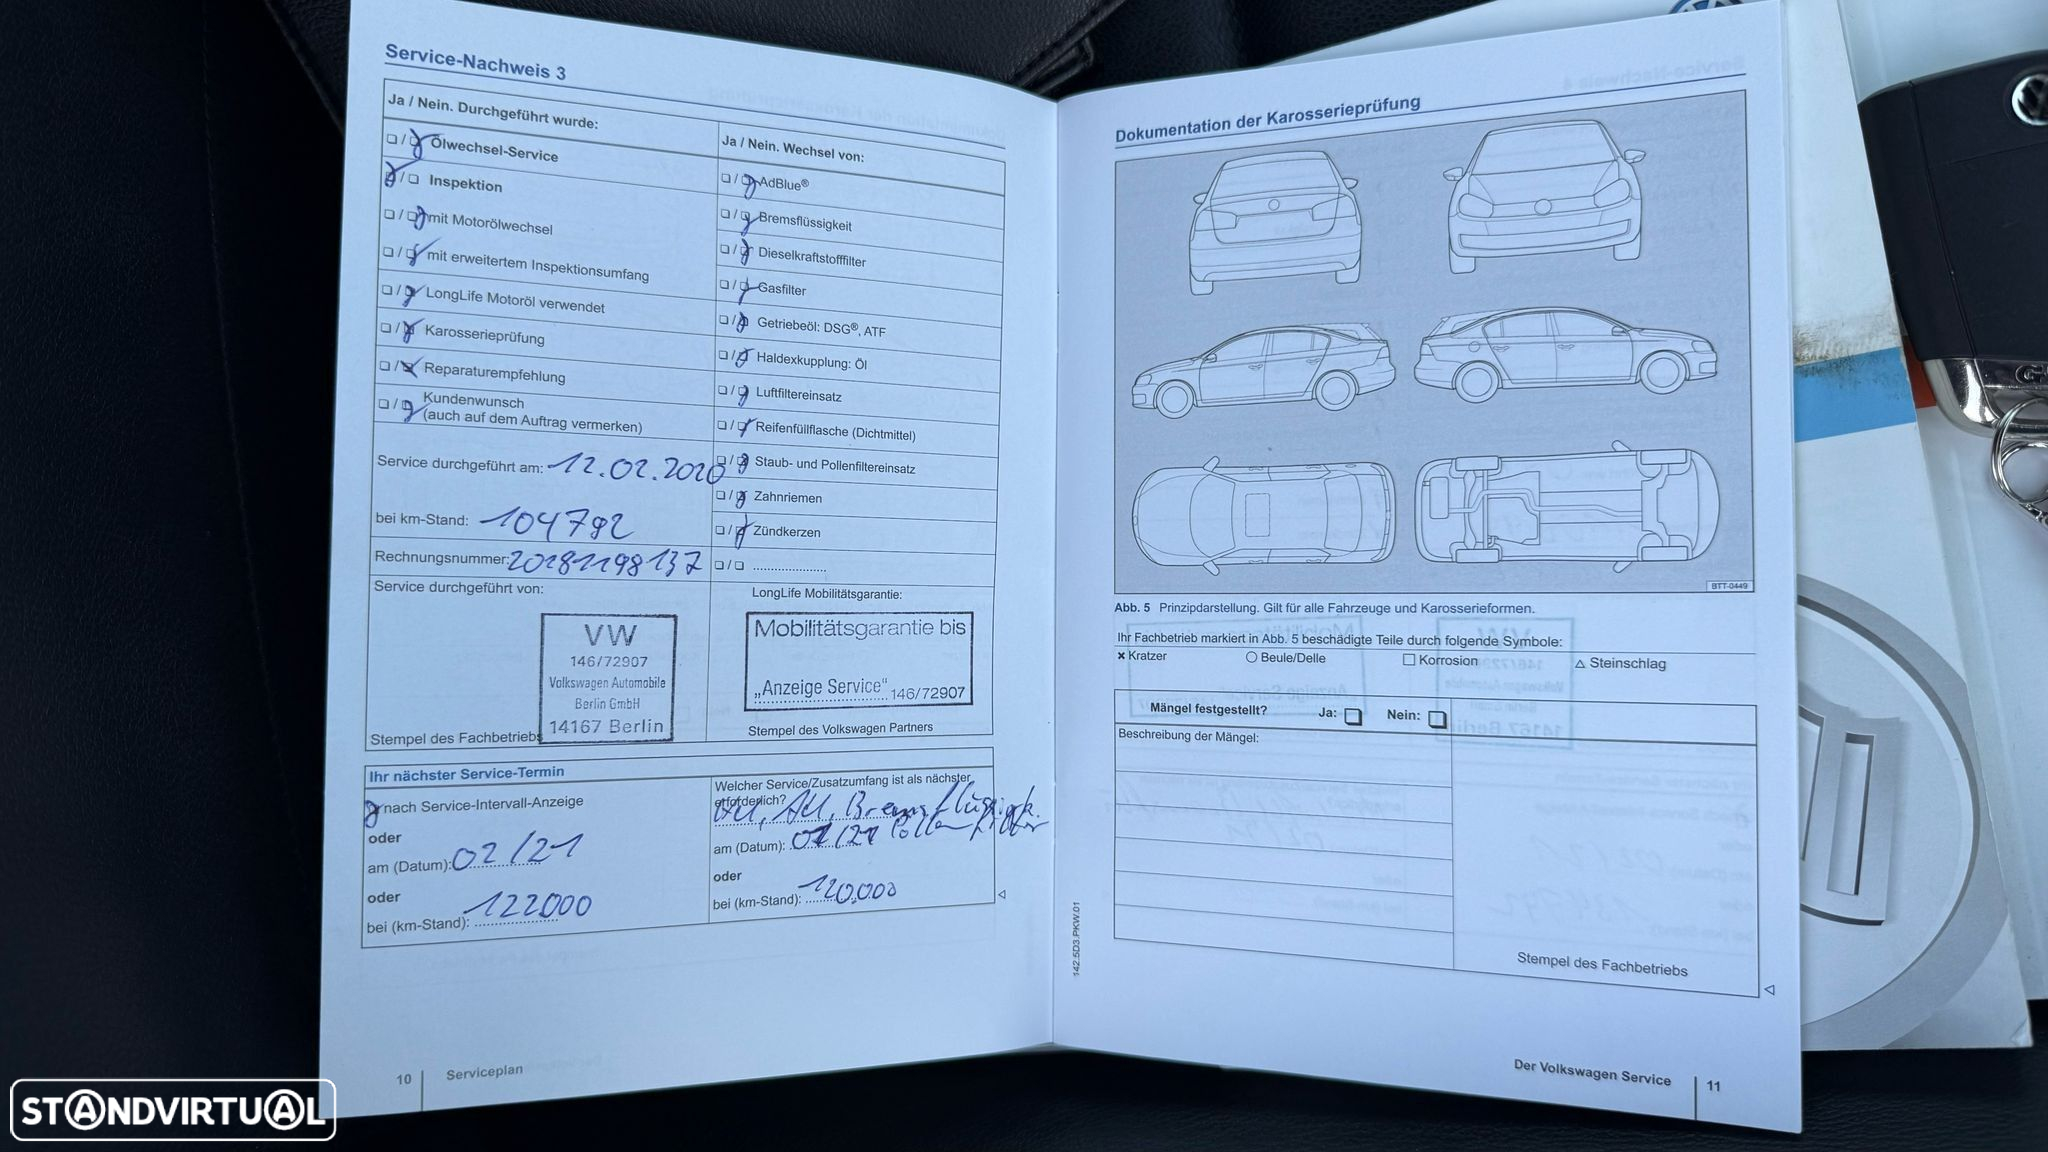 Service-Nachweis 3
Ja / Nein. Durchgeführt wurde:
Ölwechsel-Service
Inspektion
mit Motorölwechsel
mit erweitertem Inspektionsumfang
LongLife Motoröl verwendet
Karosserieprüfung
Reparaturempfehlung
Kundenwunsch
(auch auf dem Auftrag vermerken)
Service durchgeführt am: 12.02.2020
bei km-Stand: 104792
Rechnungsnummer: 20181198137
Service durchgeführt von:
VW
146/72907
Volkswagen Automobile
Berlin GmbH
14167 Berlin
Stempel des Fachbetriebs
Ja / Nein. Wechsel von:
AdBlue®
Bremsflüssigkeit
Dieselkraftstofffilter
Gasfilter
Getriebeöl: DSG®, ATF
Haldexkupplung: Öl
Luftfiltereinsatz
Reifenfüllflasche (Dichtmittel)
Staub- und Pollenfiltereinsatz
Zahnriemen
Zündkerzen
LongLife Mobilitätsgarantie:
Mobilitätsgarantie bis
„Anzeige Service“ 146/72907
Stempel des Volkswagen Partners
Ihr nächster Service-Termin
nach Service-Intervall-Anzeige
oder
am (Datum): 02/21
oder
bei (km-Stand): 122000
Welcher Service/Zusatzumfang ist als nächster
erforderlich?
AU, Bremsflüssigk.
am (Datum): Pollenfilter
oder
bei (km-Stand): 120.000
10 Serviceplan
Dokumentation der Karosserieprüfung
BTT-0449
Abb. 5 Prinzipdarstellung. Gilt für alle Fahrzeuge und Karosserieformen.
Ihr Fachbetrieb markiert in Abb. 5 beschädigte Teile durch folgende Symbole:
Kratzer Beule/Delle Korrosion Steinschlag
Mängel festgestellt? Ja: Nein:
Beschreibung der Mängel:
Stempel des Fachbetriebs
142.5D3.PKW.01
Der Volkswagen Service 11
STANDVIRTUAL